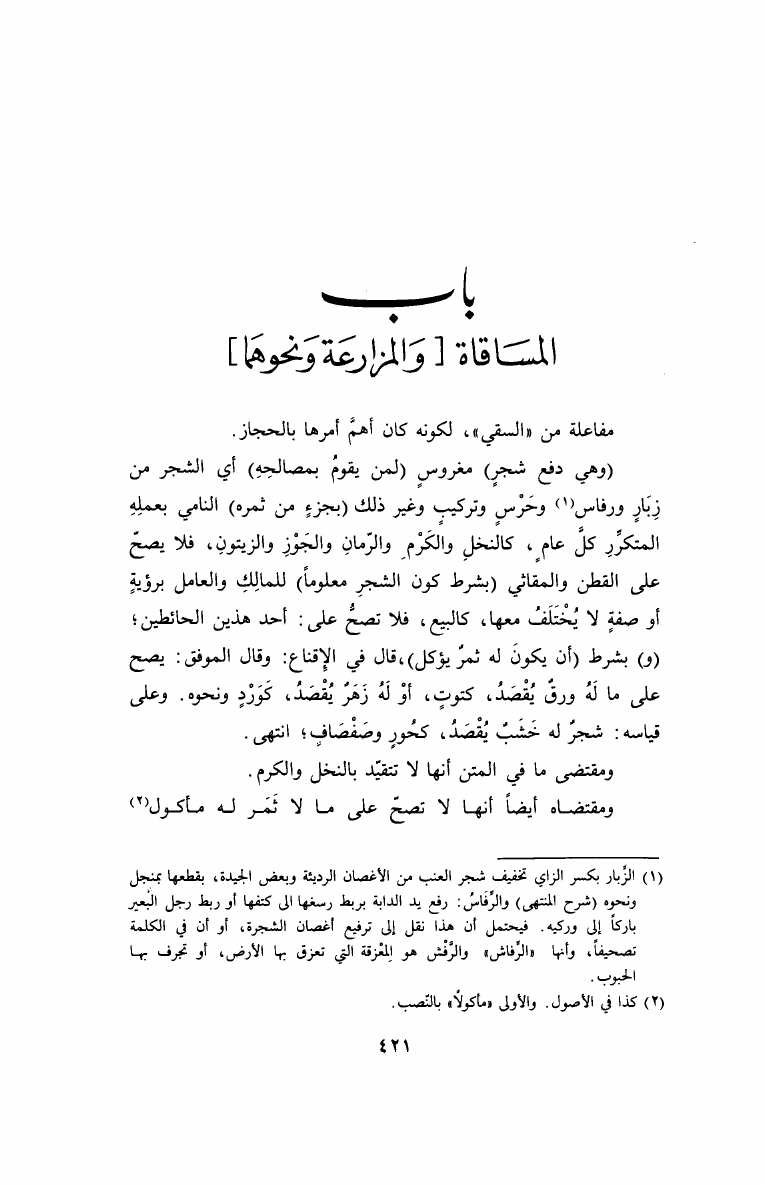 باب
المساقاة [والمزارعة ونحوها]
مفاعلة من «السقي»، لكونه كان أهمَّ أمرها بالحجاز.
(وهي دفع شجرٍ) مغروسٍ (لمن يقومُ بمصالحِهِ) أي الشجر من
زِبَارٍ ورفاس(١) وحَرْسٍ وتركيبٍ وغير ذلك (بجزءٍ من ثمره) النامي بعملِهِ
المتكرِّرِ كلَّ عامٍ، كالنخلِ والكَرْمِ والرّمانِ والجَوْزِ والزيتونِ، فلا يصحّ
على القطن والمقاثي (بشرط كون الشجرِ معلوماً) للمالِكِ والعامل برؤيةٍ
أو صفةٍ لا يُخْتَلَفُ معها، كالبيع، فلا تصحُّ على: أحد هذين الحائطين؛
(و) بشرط (أن يكونَ له ثمرٌ يؤكل)،قال في الإقناع: وقال الموفق: يصح
على ما لَهُ ورقٌ يُقْصَدُ، كتوتٍ، أوْ لَهُ زَهَرٌ يُقْصَدُ، كَوَرْدٍ ونحوه. وعلى
قياسه: شجرٌ له خَشَبٌ يُقْصَدُ، كحُورٍ وصَفْصَافٍ؛ انتهى.
ومقتضى ما في المتن أنها لا تتقيّد بالنخل والكرم.
ومقتضاه أيضاً أنها لا تصحّ على ما لا ثَمَر له مأكول(٢)
(١) الزِّبار بكسر الزاي تخفيف شجر العنب من الأغصان الرديئة وبعض الجيدة، بقطعها بمنجل
ونحوه (شرح المنتهى) والرِّفَاسُ: رفع يد الدابة بربط رسغها الى كتفها أو ربط رجل البعير
باركاً إلى وركيه. فيحتمل أن هذا نقل إلى ترفيع أغصان الشجرة، أو أن في الكلمة
تصحيفاً، وأنها «الرِّفاش» والرَّفْش هو المِعْزقة التي تعزق بها الأرض، أو تجرف بها
الحبوب.
(٢) كذا في الأصول. والأولى «مأكولاً» بالنّصب.
٤٢١